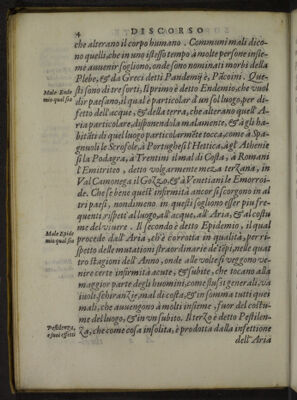 4 DISCORSO
che alterano il corpo humano. Communi mali dico-
no quelli, che in uno istesso tempo à molte persone insie-
me auuenir sogliono, onde sono nominati morbi della
Plebe, & da Greci detti Pandemij è, Pacoini. Que-
sti sono di tre sorti, Il primo è detto Endemio, che vuol
Male Ende
mio qual sia
dir paesano, il qual è particolar d'un sol luogo, per di-
fetto dell'acque, & della terra, che alterano quell'A-
ria particolare, disponendola malamente, & à gli ha-
bitãti di quel luogo particolarmẽte tocca, come à Spa-
gnuoli le Scrofole, à Portughesi l'Hettica, à gl'Athenie
si la Podagra, à Trentini il mal di Costa, à Romani
l'Emitriteo, detto volgarmente meza terzana, in
Val Camonega il Gozzo, & à Venetiani le Emorroi-
de. Che se bene queste infirmità ancor si scorgono in al
tri paesi, nondimeno in questi sogliono esser piu fre-
quenti, rispett'al luogo, all'acque, all'Aria, & al costu
me del viuere. Il secondo è detto Epidemio, il qual
Male Epide
mio qual sia
procede dall'Aria, ch'è corrotta in qualità, per ri-
spetto delle mutationi straordinarie de' tẽpi, nelle quat
tro stagioni dell'Anno, onde alle volte si veggono ve-
nire certe infirmità acute, & subite, che tocano alla
maggior parte degli huomini, come flussi generali, va
iuole, schiranzie, mal di costa, & in somma tutti quei
mali, che auuengono à molti insieme, fuor del costu-
me del luogo, & in vn subito. Il terzo è detto Pestilen-
Pestilenza,
e suoi effetti
za, che come cosa insolita, è prodotta dalla infettione
dell'Aria